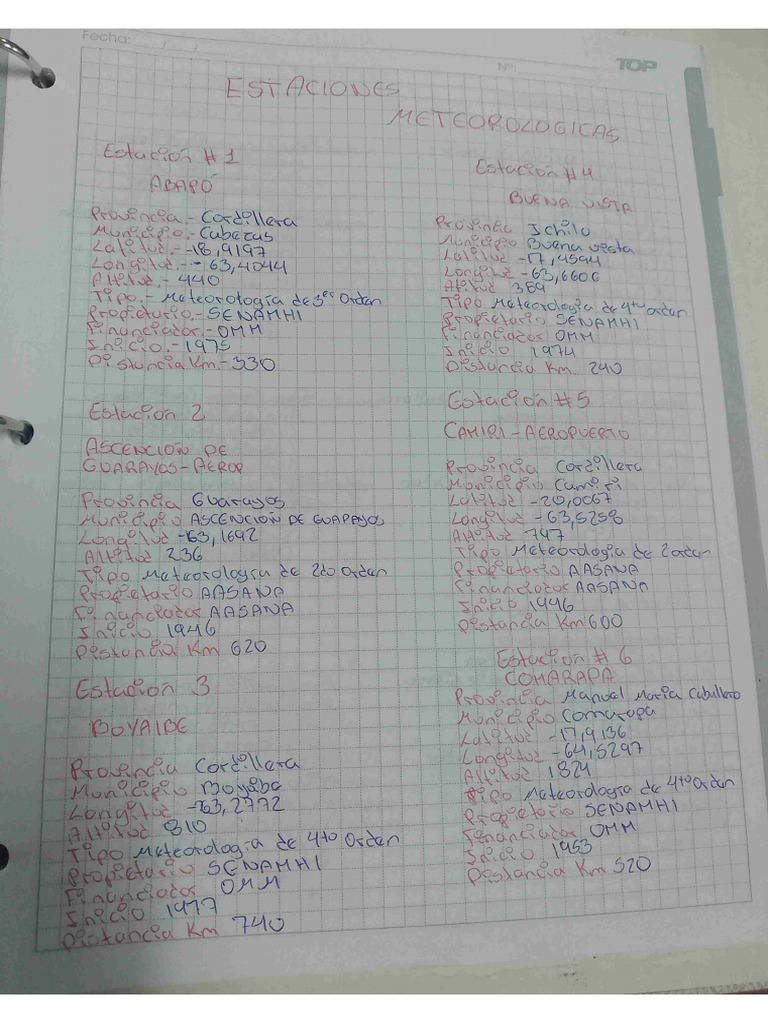 Fecha: / /
Nº:
TOP
ESTACIONES
METEOROLOGICAS
Estación #1
ABAPÓ
Provincia.- Cordillera
Municipio.- Cabezas
Latitud.- -18,9197
Longitud.- -63,4044
Altitud.- 440
Tipo.- Meteorologia de 3er Orden
Propietario.- SENAMHI
Financiador.- OMM
Inicio.- 1975
Distancia Km.- 330
Estacion 2
ASCENCIÓN DE
GUARAYOS-AEROP
Provincia Guarayos
Municipio ASCENCIÓN DE GUARAYOS
Longitud -63,1692
Altitud 236
Tipo Meteorologia de 2do Orden
Propietario AASANA
Financiador AASANA
Inicio 1946
Distancia Km 620
Estacion 3
BOYAIBE
Provincia Cordillera
Municipio Boyaibe
Longitud -63,2772
Altitud 810
Tipo Meteorologia de 4to Orden
Propietario SENAMHI
Financiador OMM
Inicio 1977
Distancia Km 740
Estación #4
BUENA VISTA
Provincia Ichilo
Municipio Buena vista
Latitud -17,4594
Longitud -63,6606
Altitud 369
Tipo Meteorologia de 4to orden
Propietario SENAMHI
Financiador OMM
Inicio 1974
Distancia Km. 240
Estación #5
CAMIRI-AEROPUERTO
Provincia Cordillera
Municipio Camiri
Latitud -20,0067
Longitud -63,5258
Altitud 797
Tipo Meteorologia de 2 orden
Propietario AASANA
Financiador AASANA
Inicio 1946
Distancia Km 600
Estación # 6
COMARAPA
Provincia Manuel Maria Caballero
Municipio Comarapa
Latitud -17,9136
Longitud -64,5297
Altitud 1824
Tipo Meteorologia de 4to Orden
Propietario SENAMHI
Financiador OMM
Inicio 1953
Distancia Km 520